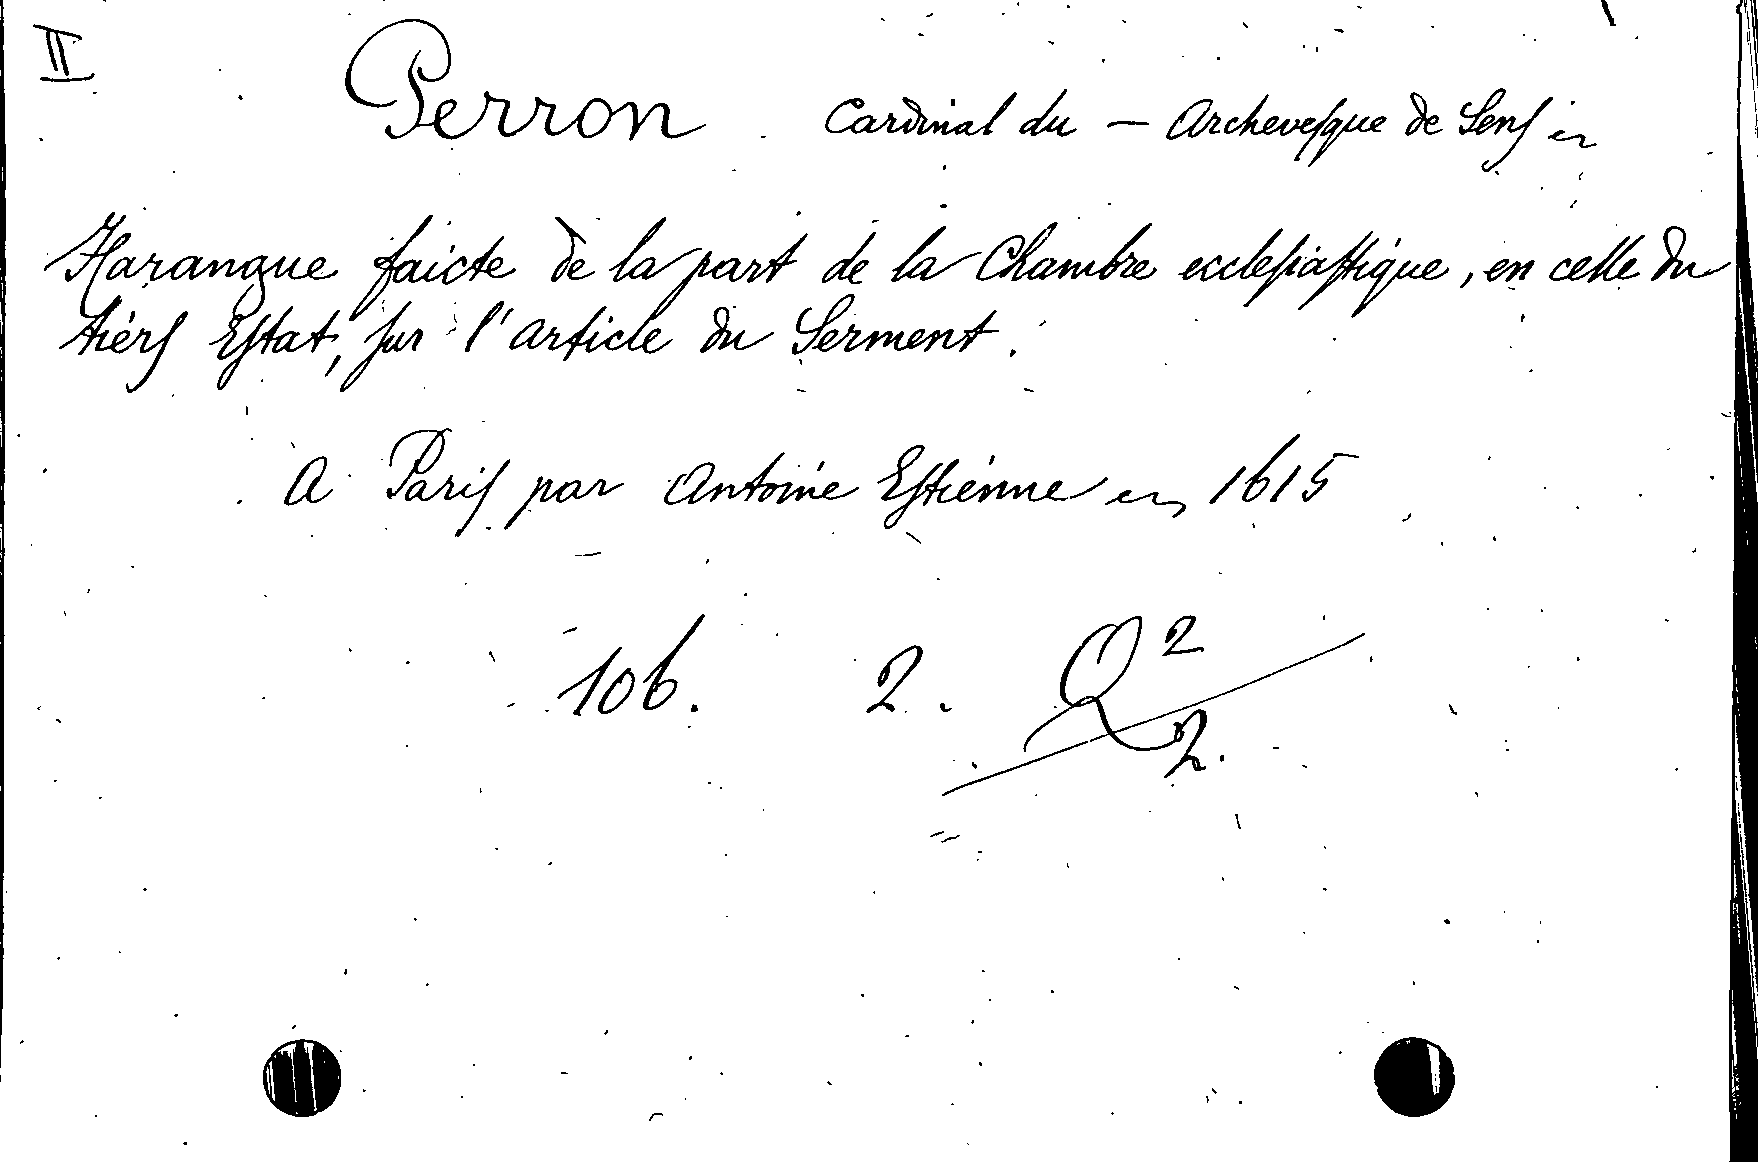 II
Perron Cardinal du — Archeveſque de Senſ
Harangue faicte de la part de la Chambre eccleſiaſtique, en celle du
tierſ Eſtat, ſur l'article du Serment.
A Pariſ par Antoine Eſtienne 1615
106. 2. Q 2
2.